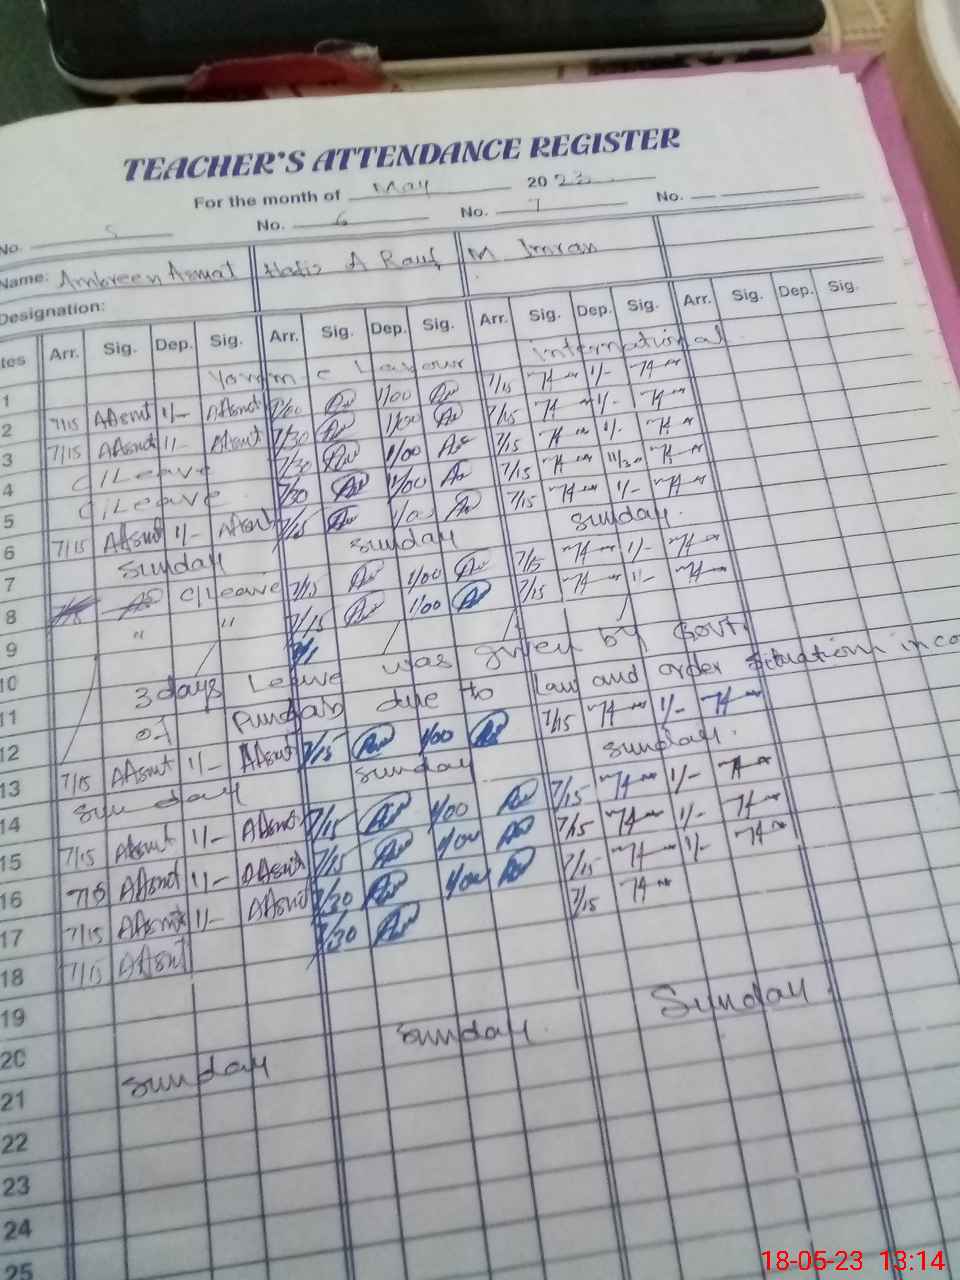 TEACHER'S ATTENDANCE REGISTER
For the month of May 2023
No. 5 No. 6 No. 7 No.
Name: Ambreen Asmat Hafiz A Rauf M Imran
Designation:
tes Arr. Sig. Dep. Sig. Arr. Sig. Dep. Sig. Arr. Sig. Dep. Sig. Arr. Sig. Dep. Sig.
1 international
2 7/15 AAsmt 1/- AAsmt 1/00 7/15 1/-
3 7/15 AAsmt 1/- AAsmt 7/30 1/00 7/15 1/-
4 C/Leave 7/30 1/00 7/15 1/-
5 C/Leave 7/30 1/00 7/15 11/30
6 7/15 AAsmt 1/- AAsmt 7/15 7/15 1/-
7 Sunday Sunday Sunday.
8 C/Leave 7/15 1/00 7/15 1/-
9 " " 7/15 1/00 7/15 1/-
10 3 days Leave was given by Govt.
11 of Punjab due to law and order situation in co
12
13 7/15 AAsmt 1/- AAsmt 7/15 1/00 7/15 1/-
14 Sunday Sunday Sunday.
15 7/15 AAsmt 1/- AAsmt 7/15 1/00 7/15 1/-
16 7/15 AAsmt 1/- AAsmt 7/15 1/00 7/15 1/-
17 7/15 AAsmt 1/- AAsmt 7/30 1/00 7/15 1/-
18 7/15 AAsmt 7/30 7/15
19
20
21 Sunday Sunday. Sunday.
22
23
24
25
18-05-23 13:14